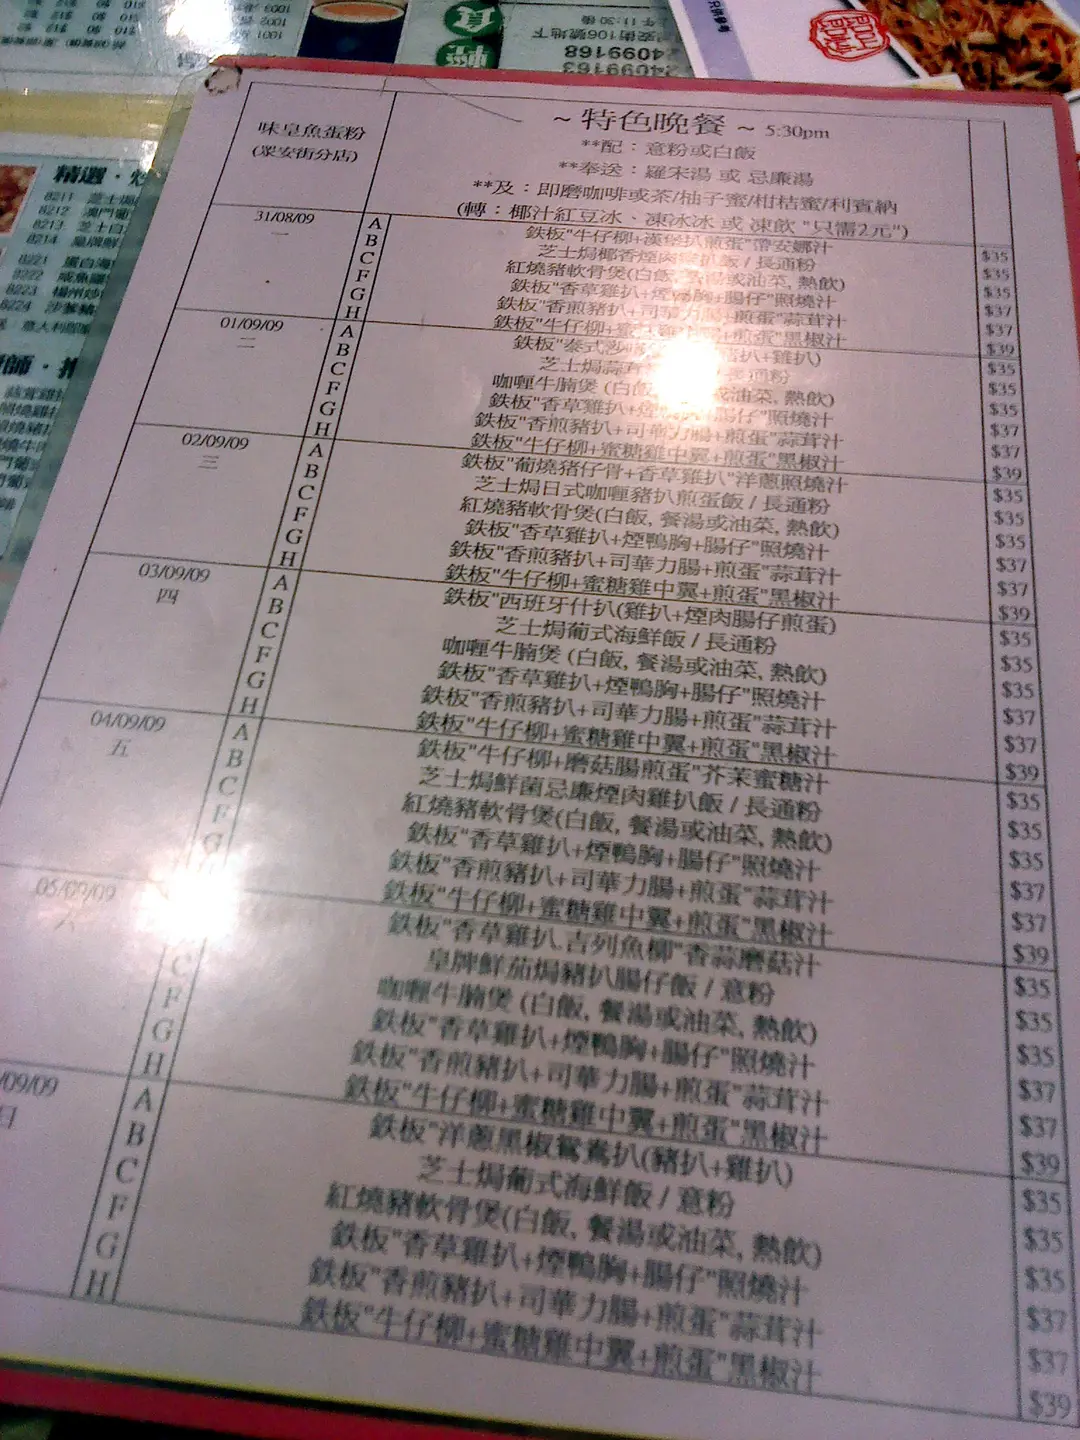 味皇魚蛋粉
(眾安街分店)
~ 特色晚餐 ~ 5:30pm
**配：意粉或白飯
**奉送：羅宋湯 或 忌廉湯
**及：即磨咖啡或茶/柚子蜜/柑桔蜜/利賓納
(轉：椰汁紅豆冰、凍冰冰 或 凍飲 "只需2元")
31/08/09
一
A 鉄板"牛仔柳+漢堡扒煎蛋"蒂安娜汁 $35
B 芝士焗椰香煙肉雞扒飯 / 長通粉 $35
C 紅燒豬軟骨煲(白飯, 餐湯或油菜, 熱飲) $35
F 鉄板"香草雞扒+煙鴨胸+腸仔"照燒汁 $37
G 鉄板"香煎豬扒+ +煎蛋"蒜茸汁 $37
H 鉄板"牛仔柳+蜜 +煎蛋"黑椒汁 $39
01/09/09
二
A 鉄板"泰式沙 豬扒+雞扒) $35
B 芝士焗蒜 通粉 $35
C 咖喱牛腩煲 (白飯, 或油菜, 熱飲) $35
F 鉄板"香草雞扒+煙 腸仔"照燒汁 $37
G 鉄板"香煎豬扒+司華力腸+煎蛋"蒜茸汁 $37
H 鉄板"牛仔柳+蜜糖雞中翼+煎蛋"黑椒汁 $39
02/09/09
三
A 鉄板"葡燒豬仔骨+香草雞扒"洋蔥照燒汁 $35
B 芝士焗日式咖喱豬扒煎蛋飯 / 長通粉 $35
C 紅燒豬軟骨煲(白飯, 餐湯或油菜, 熱飲) $35
F 鉄板"香草雞扒+煙鴨胸+腸仔"照燒汁 $37
G 鉄板"香煎豬扒+司華力腸+煎蛋"蒜茸汁 $37
H 鉄板"牛仔柳+蜜糖雞中翼+煎蛋"黑椒汁 $39
03/09/09
四
A 鉄板"西班牙什扒(雞扒+煙肉腸仔煎蛋) $35
B 芝士焗葡式海鮮飯 / 長通粉 $35
C 咖喱牛腩煲 (白飯, 餐湯或油菜, 熱飲) $35
F 鉄板"香草雞扒+煙鴨胸+腸仔"照燒汁 $37
G 鉄板"香煎豬扒+司華力腸+煎蛋"蒜茸汁 $37
H 鉄板"牛仔柳+蜜糖雞中翼+煎蛋"黑椒汁 $39
04/09/09
五
A 鉄板"牛仔柳+磨菇腸煎蛋"芥茉蜜糖汁 $35
B 芝士焗鮮菌忌廉煙肉雞扒飯 / 長通粉 $35
C 紅燒豬軟骨煲(白飯, 餐湯或油菜, 熱飲) $35
F 鉄板"香草雞扒+煙鴨胸+腸仔"照燒汁 $37
G 鉄板"香煎豬扒+司華力腸+煎蛋"蒜茸汁 $37
鉄板"牛仔柳+蜜糖雞中翼+煎蛋"黑椒汁 $39
05/09/09
六
鉄板"香草雞扒.吉列魚柳"香蒜磨菇汁 $35
皇牌鮮茄焗豬扒腸仔飯 / 意粉 $35
C 咖喱牛腩煲 (白飯, 餐湯或油菜, 熱飲) $35
F 鉄板"香草雞扒+煙鴨胸+腸仔"照燒汁 $37
G 鉄板"香煎豬扒+司華力腸+煎蛋"蒜茸汁 $37
H 鉄板"牛仔柳+蜜糖雞中翼+煎蛋"黑椒汁 $39
/09/09
日
A 鉄板"洋蔥黑椒鴛鴦扒(豬扒+雞扒) $35
B 芝士焗葡式海鮮飯 / 意粉 $35
C 紅燒豬軟骨煲(白飯, 餐湯或油菜, 熱飲) $35
F 鉄板"香草雞扒+煙鴨胸+腸仔"照燒汁 $37
G 鉄板"香煎豬扒+司華力腸+煎蛋"蒜茸汁 $37
H 鉄板"牛仔柳+蜜糖雞中翼+煎蛋"黑椒汁 $39
24099168
24099163
精選
8211 芝士焗
8212 澳門葡
8213 芝士白
8214
8221
8222 咸魚
8223 楊州炒
8224 沙爹豬